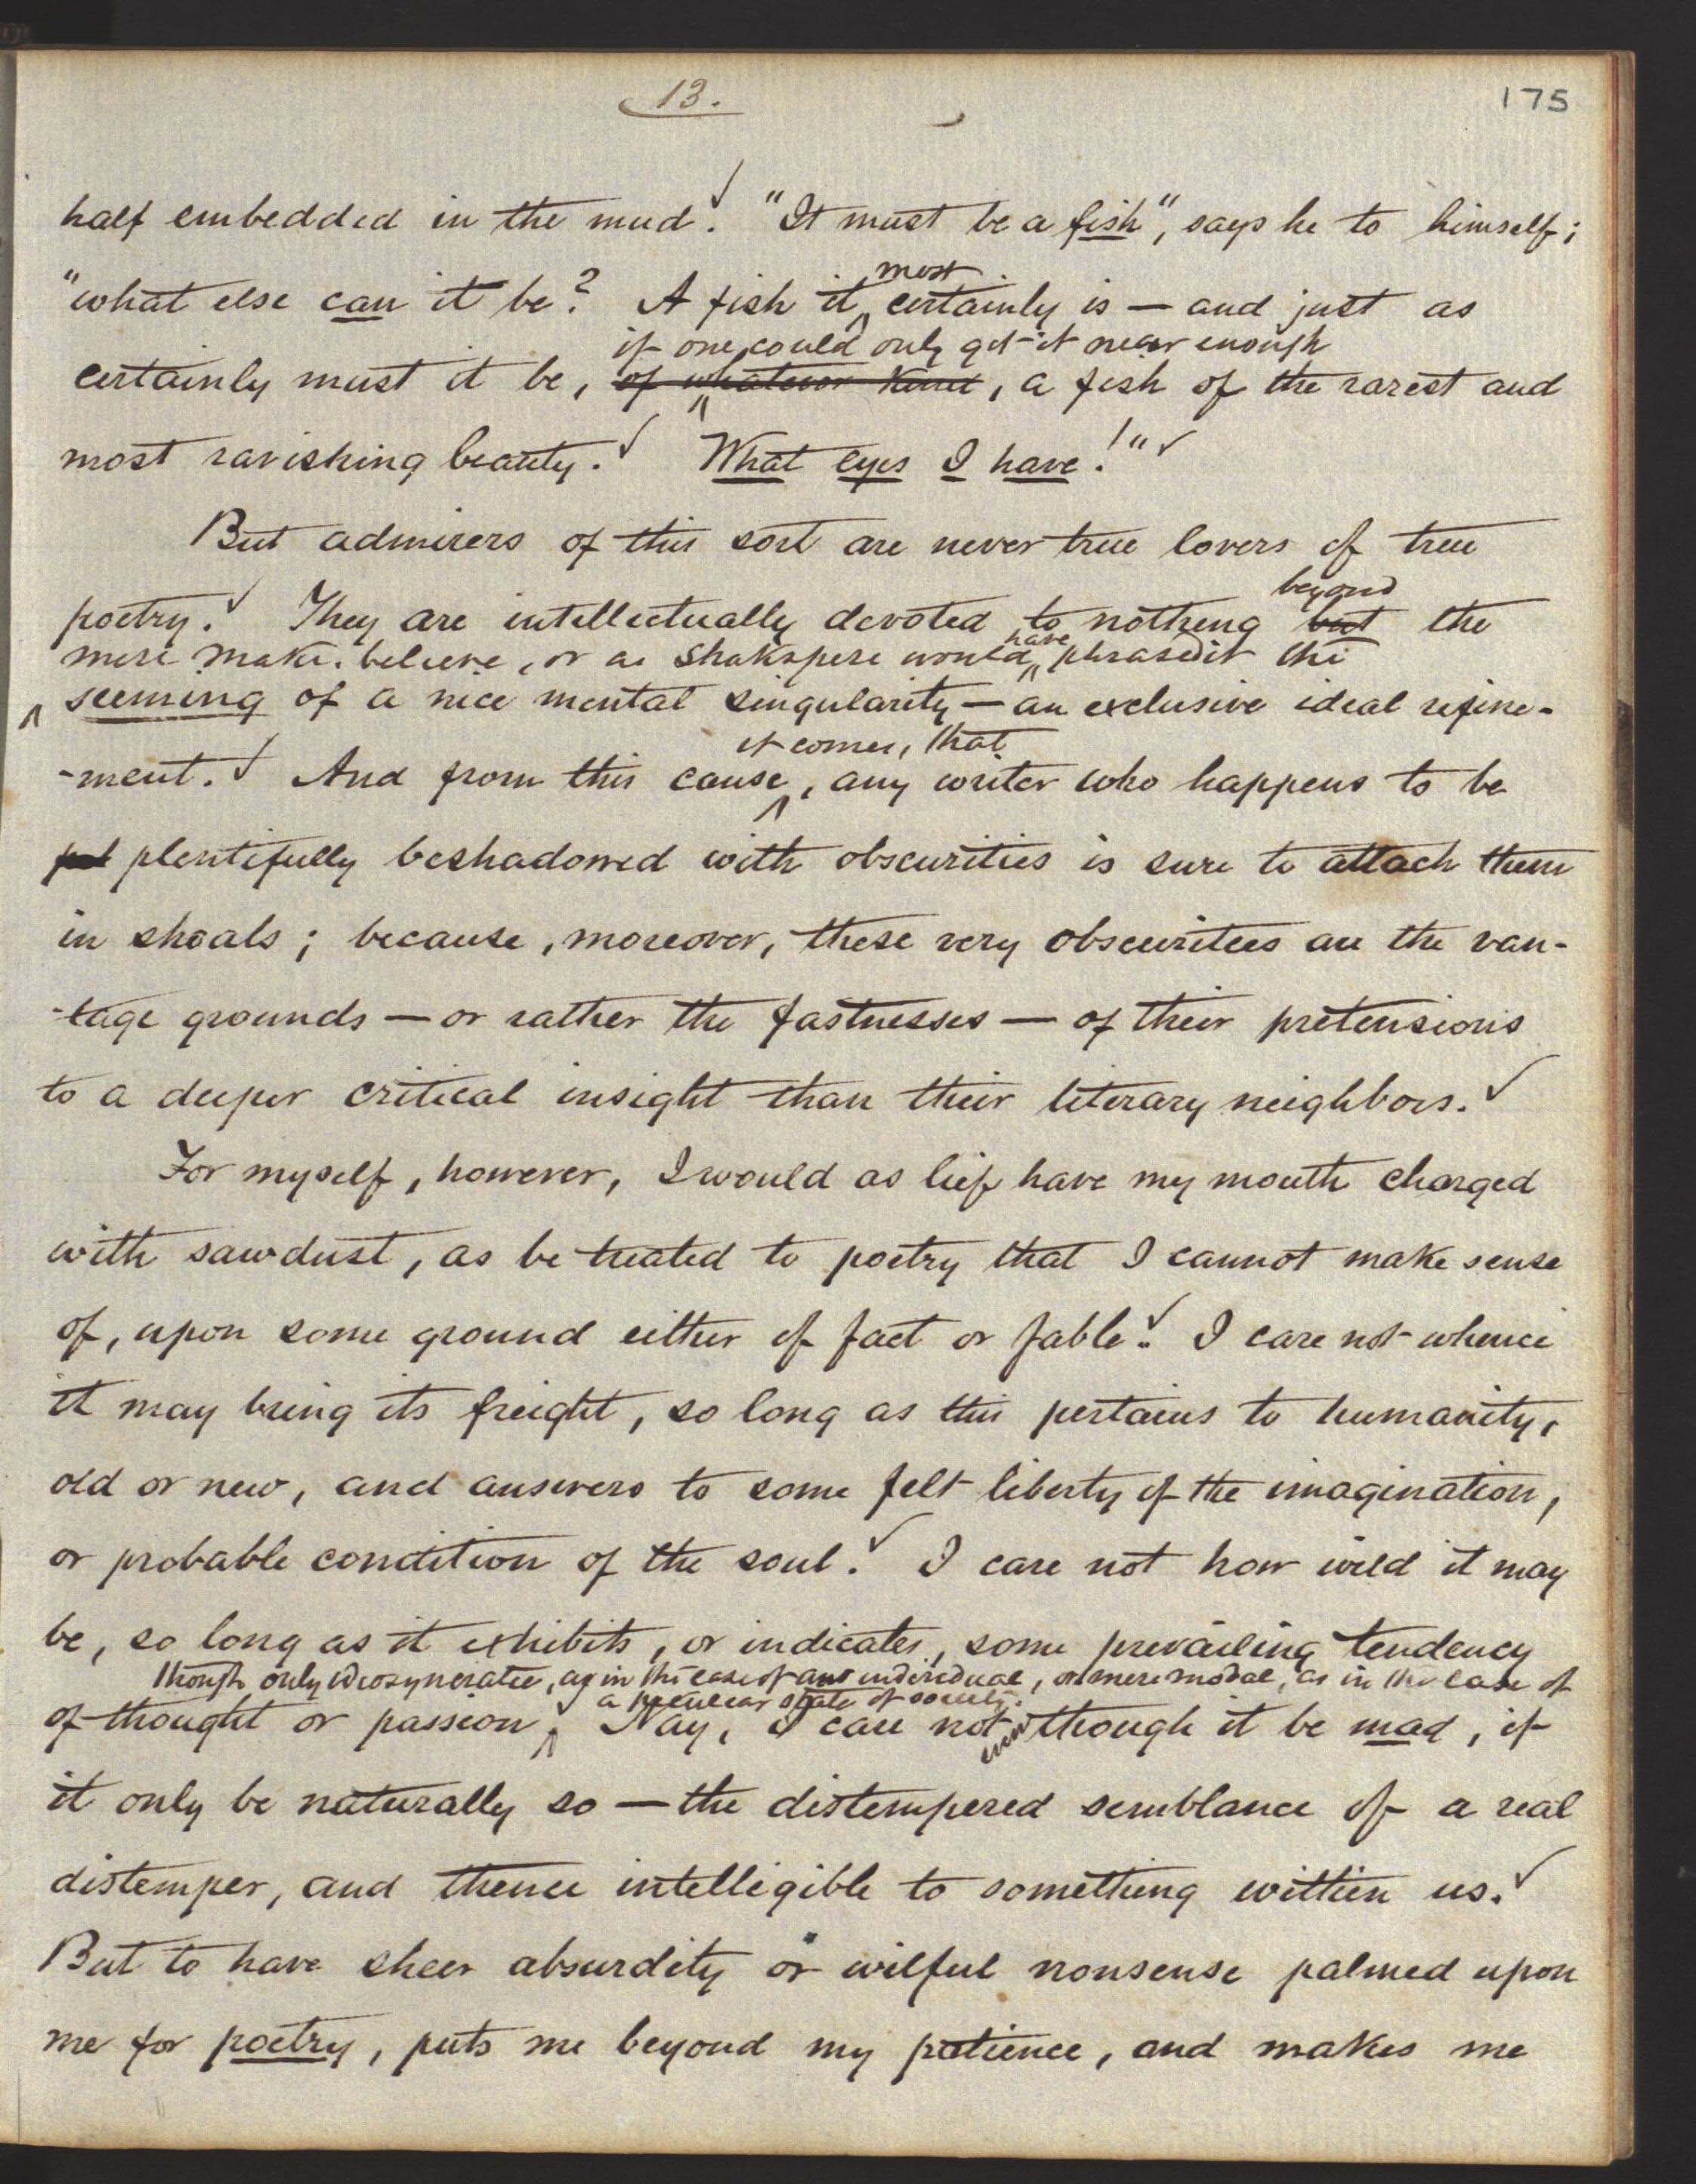 13.
175
half embedded in the mud. "It must be a fish", says he to himself;
"what else can it be? A fish it most certainly is — and just as
if one could only get it near enough
certainly must it be, of whatever kind, a fish of the rarest and
most ravishing beauty. What eyes I have!"
But admirers of this sort are never true lovers of true
beyond
poetry. They are intellectually devoted to nothing but the
mere make-believe, or as Shakspere would have phrased it the
seeming of a nice mental singularity — an exclusive ideal refine-
it comes, that
-ment. And from this cause, any writer who happens to be
plentifully beshadowed with obscurities is sure to attach them
in shoals; because, moreover, these very obscurities are the van-
-tage grounds — or rather the fastnesses — of their pretensions
to a deeper critical insight than their literary neighbors.
For myself, however, I would as lief have my mouth charged
with sawdust, as be treated to poetry that I cannot make sense
of, upon some ground either of fact or fable. I care not whence
it may bring its freight, so long as this pertains to humanity,
old or new, and answers to some felt liberty of the imagination,
or probable condition of the soul. I care not how wild it may
be, so long as it exhibits, or indicates, some prevailing tendency
though only idiosyncratic, as in the case of an individual, or mere modal, as in the case of
a peculiar state of society.
of thought or passion. Nay, I care not even though it be mad, if
it only be naturally so — the distempered semblance of a real
distemper, and thence intelligible to something within us.
But to have sheer absurdity or wilful nonsense palmed upon
me for poetry, puts me beyond my patience, and makes me